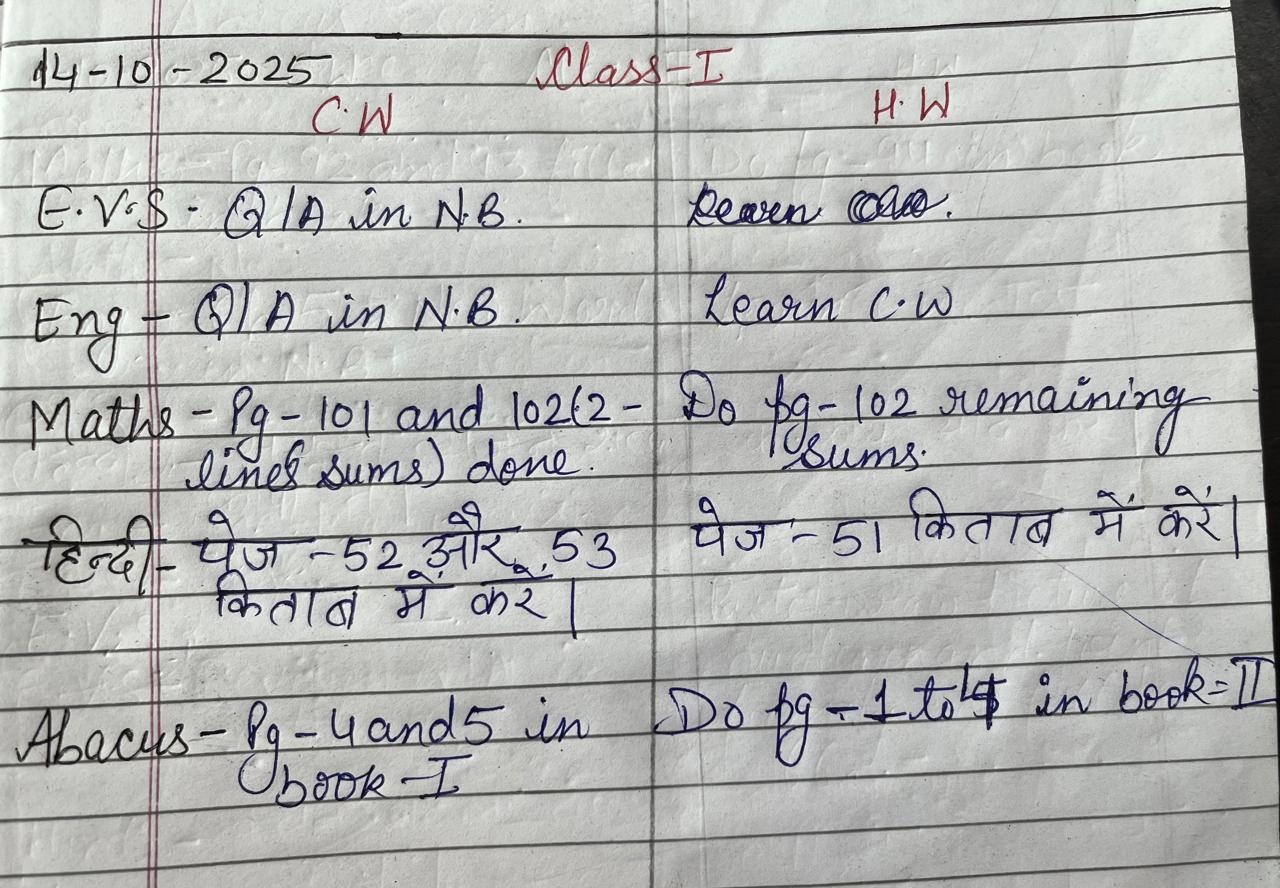 14-10-2025 Class-I
C.W H.W
E.V.S - Q/A in N.B. Learn
Eng - Q/A in N.B. Learn C.W
Maths - Pg - 101 and 102(2 - Do pg-102 remaining
lines sums) done. sums.
हिन्दी- पेज -52 और 53 पेज - 51 किताब में करें|
किताब में करें|
Abacus - Pg - 4 and 5 in Do pg - 1 to 4 in book=II
book-I